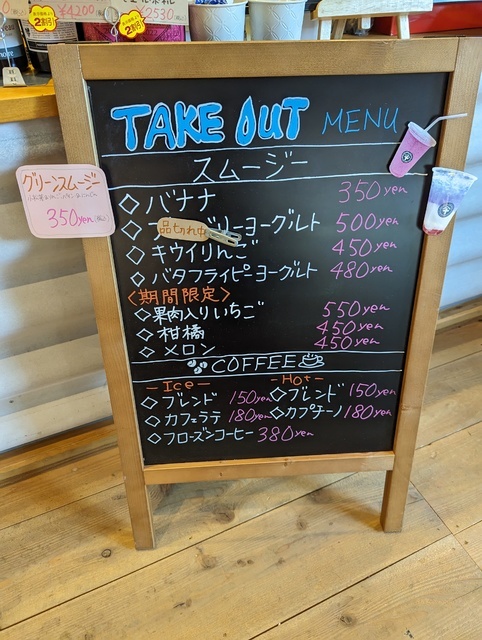 ¥4200
2割引
2割引
¥2530
TAKE OUT MENU
スムージー
グリーンスムージー
350yen
◇バナナ 350yen
品切れ中
リーヨーグルト 500yen
◇キウイりんご 450yen
◇バタフライピーヨーグルト 480yen
〈期間限定〉
◇果肉入りいちご 550yen
◇柑橘 450yen
◇メロン 450yen
COFFEE
-Ice-
◇ブレンド 150yen
◇カフェラテ 180yen
◇フローズンコーヒー 380yen
-Hot-
◇ブレンド 150yen
◇カプチーノ 180yen